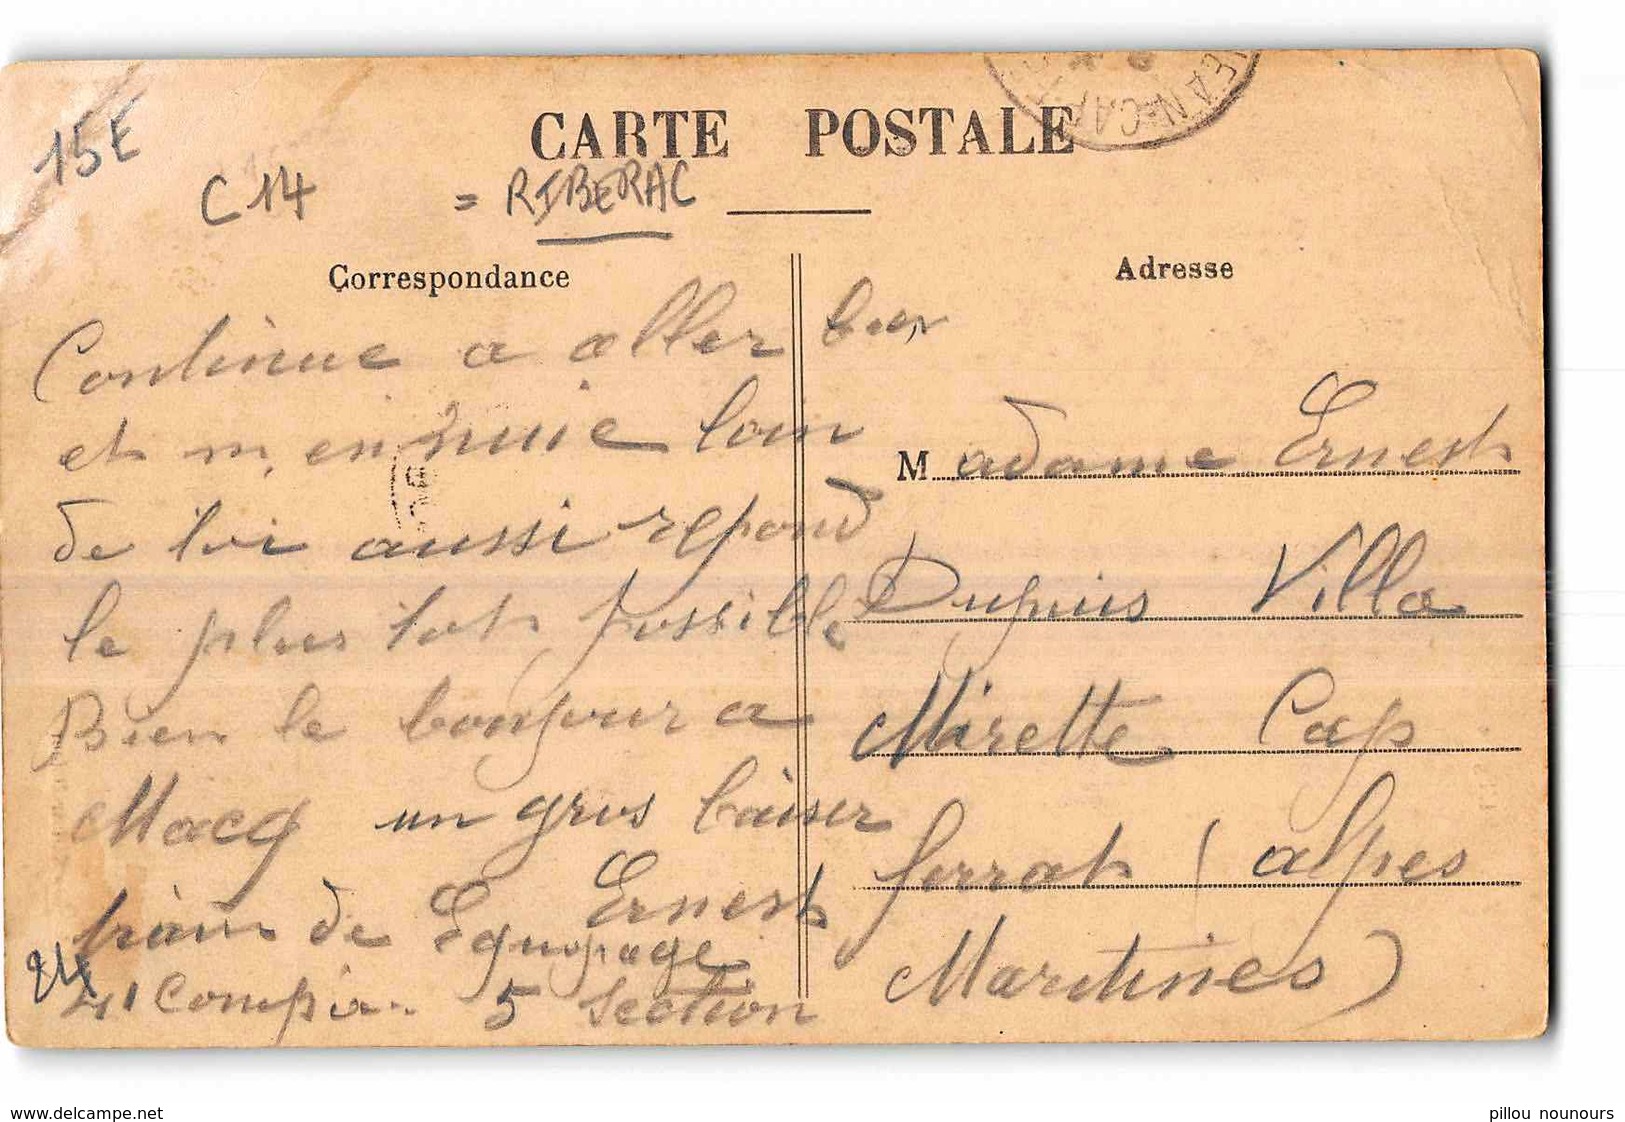 15E
CARTE POSTALE
C14 = RIBERAC
Correspondance
Continue a aller bien
et m'ennuie loin
de toi aussi repond
le plus tot possible
Bien le bonjour a
un gros baiser
Ernest
train de Equipage
5 section
24
Adresse
Madame Ernest
Dupuis Villa
Mirette Cap
ferrat (alpes
Maritimes)
www.delcampe.net
pillou nounours